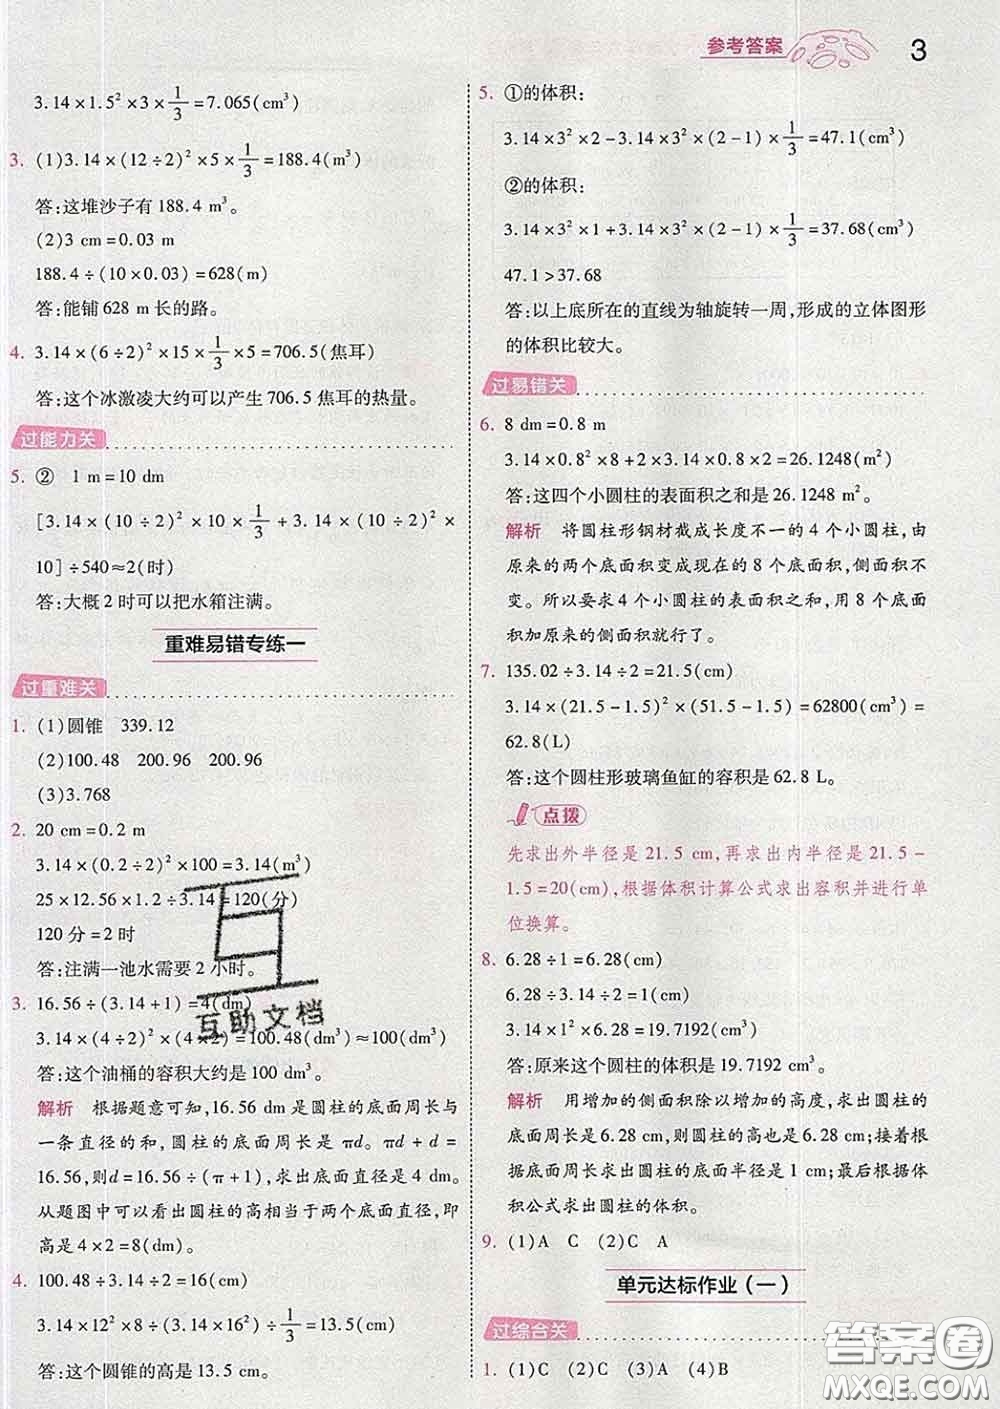 参考答案 3
3.14×1.5²×3×1/3=7.065(cm³)
3. (1)3.14×(12÷2)²×5×1/3=188.4(m³)
答:这堆沙子有 188.4 m³。
(2)3 cm=0.03 m
188.4÷(10×0.03)=628(m)
答:能铺 628 m 长的路。
4. 3.14×(6÷2)²×15×1/3×5=706.5(焦耳)
答:这个冰激凌大约可以产生 706.5 焦耳的热量。
过能力关
5. ② 1 m=10 dm
[3.14×(10÷2)²×10×1/3+3.14×(10÷2)²×
10]÷540≈2(时)
答:大概 2 时可以把水箱注满。
重难易错专练一
过重难关
1. (1)圆锥 339.12
(2)100.48 200.96 200.96
(3)3.768
2. 20 cm=0.2 m
3.14×(0.2÷2)²×100=3.14(m³)
25×12.56×1.2÷3.14=120(分)
120 分=2 时
答:注满一池水需要 2 小时。
3. 16.56÷(3.14+1)=4(dm)
3.14×(4÷2)²×(4×2)=100.48(dm³)≈100(dm³)
答:这个油桶的容积大约是 100 dm³。
解析 根据题意可知,16.56 dm 是圆柱的底面周长与
一条直径的和,圆柱的底面周长是 πd。πd+d=
16.56,则 d=16.56÷(π+1),求出底面直径是 4 dm。
从题图中可以看出圆柱的高相当于两个底面直径,即
高是 4×2=8(dm)。
4. 100.48÷3.14÷2=16(cm)
3.14×12²×8÷(3.14×16²)÷1/3=13.5(cm)
答:这个圆锥的高是 13.5 cm。
5. ①的体积:
3.14×3²×2-3.14×3²×(2-1)×1/3=47.1(cm³)
②的体积:
3.14×3²×1+3.14×3²×(2-1)×1/3=37.68(cm³)
47.1>37.68
答:以上底所在的直线为轴旋转一周,形成的立体图形
的体积比较大。
过易错关
6. 8 dm=0.8 m
3.14×0.8²×8+2×3.14×0.8×2=26.1248(m²)
答:这四个小圆柱的表面积之和是 26.1248 m²。
解析 将圆柱形钢材截成长度不一的 4 个小圆柱,由
原来的两个底面积变成现在的 8 个底面积,侧面积不
变。所以要求 4 个小圆柱的表面积之和,用 8 个底面
积加原来的侧面积就行了。
7. 135.02÷3.14÷2=21.5(cm)
3.14×(21.5-1.5)²×(51.5-1.5)=62800(cm³)=
62.8(L)
答:这个圆柱形玻璃鱼缸的容积是 62.8 L。
点拨
先求出外半径是 21.5 cm,再求出内半径是 21.5-
1.5=20(cm),根据体积计算公式求出容积并进行单
位换算。
8. 6.28÷1=6.28(cm)
6.28÷3.14÷2=1(cm)
3.14×1²×6.28=19.7192(cm³)
答:原来这个圆柱的体积是 19.7192 cm³。
解析 用增加的侧面积除以增加的高度,求出圆柱的
底面周长是 6.28 cm,则圆柱的高也是 6.28 cm;接着根
据底面周长求出圆柱的底面半径是 1 cm;最后根据体
积公式求出圆柱的体积。
9. (1)A C (2)C A
单元达标作业(一)
过综合关
1. (1)C (2)C (3)A (4)B
互助文档
答案圈
MXQE.COM